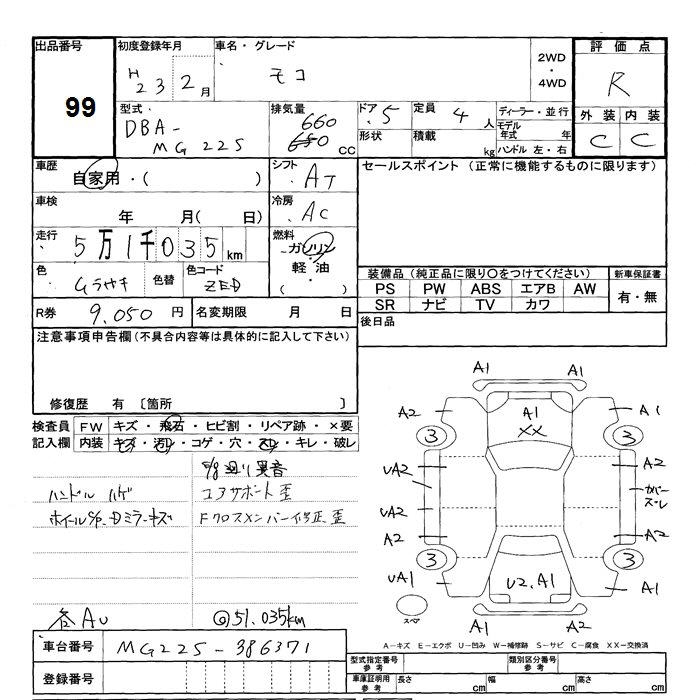 出品番号 初度登録年月 車名・グレード 2WD・4WD 評価点
99 H23 2月 モコ R
外装 内装
C C
型式 DBA-MG22S 排気量 660 cc ドア 5 定員 4人 ディーラー・並行
形状 積載 kg モデル年式 年
ハンドル 左・右
車歴 自家用・( ) シフト AT セールスポイント (正常に機能するものに限ります)
車検 年 月( 日) 冷房 AC
走行 5万1千035km 燃料 ガソリン
軽油
( )
色 Gラサキ 色替 色コード ZED
装備品 (純正品に限り○をつけてください) 新車保証書
PS PW ABS エアB AW 有・無
SR ナビ TV カワ
R券 9,050円 名変期限 月 日 後日品
注意事項申告欄 (不具合内容等は具体的に記入して下さい)
修復歴 有 〔箇所 〕
検査員記入欄 FW キズ・飛石・ヒビ割・リペア跡・×要
内装 キズ・汚レ・コゲ・穴・スレ・キレ・破レ
廻り異音
ハンドル ハゲ コアサポート歪
ホイールS/P.Dミラーキズ Fクロスメンバー修正歪
各AU @51.035km
A1 A1
A2 A1 XX A1
3 3
UA2 A2
カバーズレ
UA2
A2 A2
3 3
UA1 U2.A1 A1
スペア A1 A2
A-キズ E-エクボ U-凹み W-補修跡 S-サビ C-腐食 XX-交換済
車台番号 MG22S-386371
登録番号
型式指定番号 参考 類別区分番号 参考
車庫証明用 参考 長さ cm 幅 cm 高さ cm